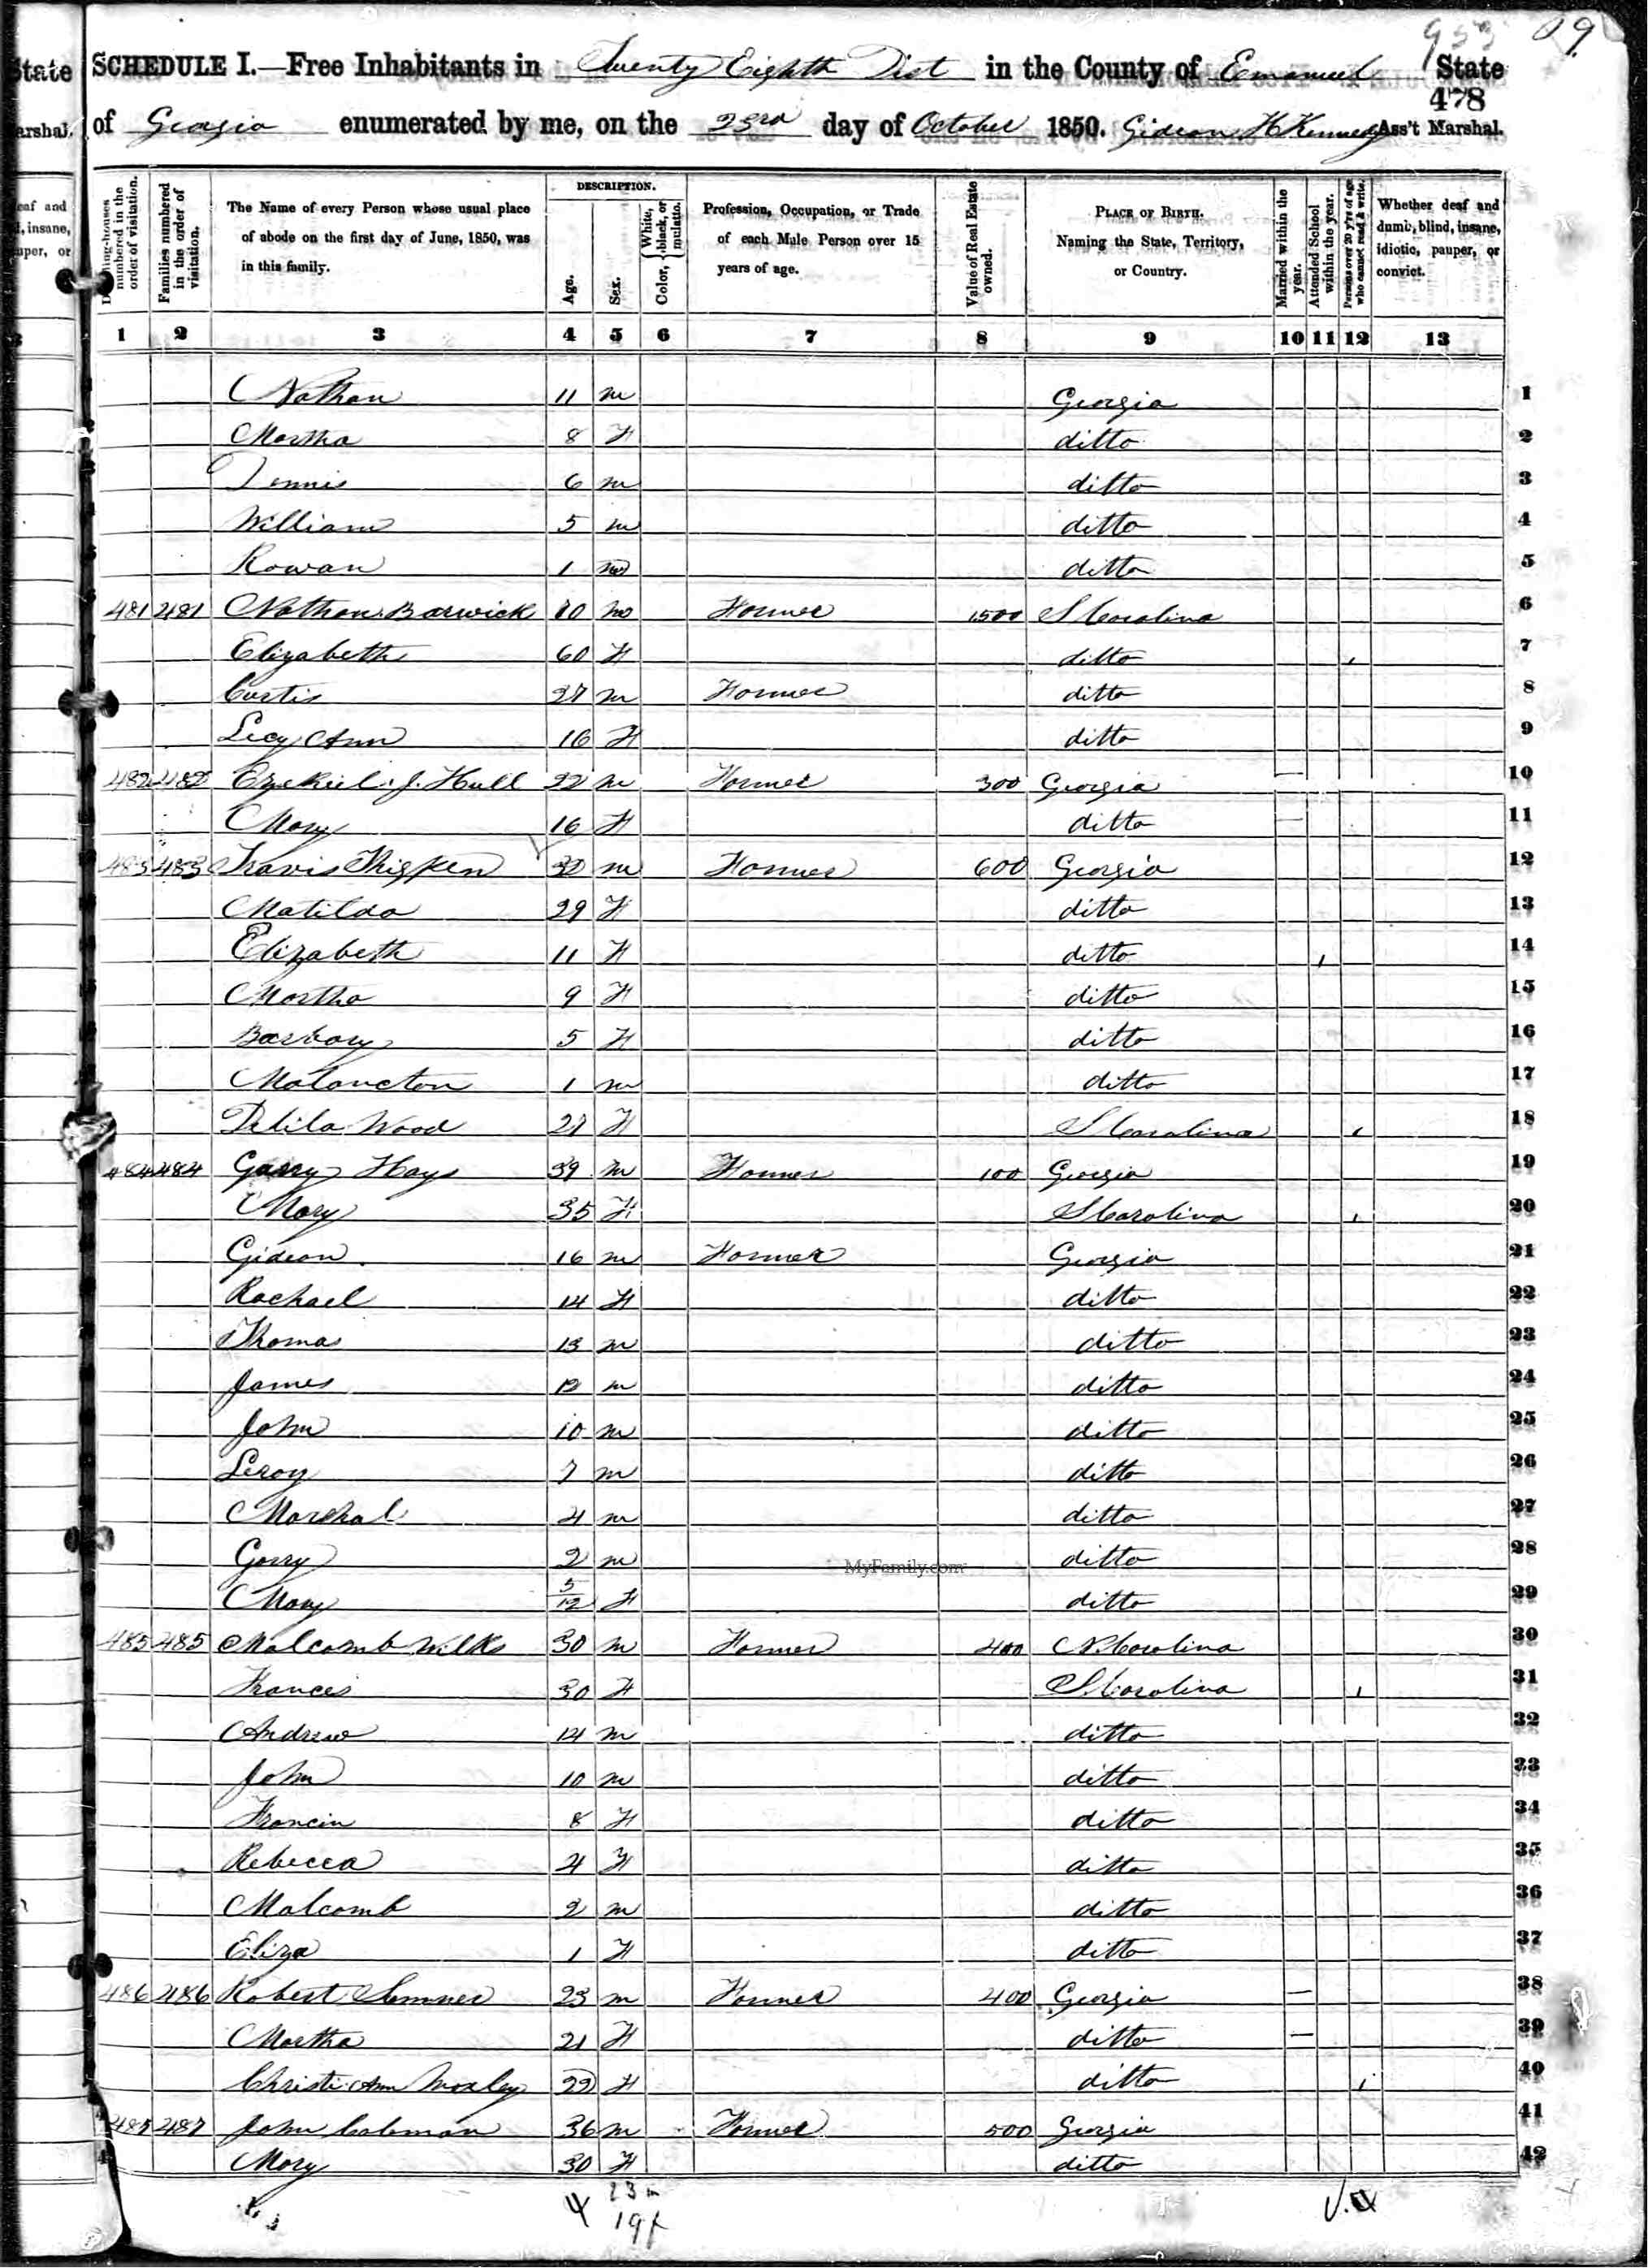 953 99
SCHEDULE I.—Free Inhabitants in Twenty Eighth Dist in the County of Emanuel State
478
of Georgia enumerated by me, on the 23rd day of October 1850. Gideon H Kennedy Ass't Marshal.
Dwelling-houses numbered in the order of visitation.
Families numbered in the order of visitation.
The Name of every Person whose usual place of abode on the first day of June, 1850, was in this family.
DESCRIPTION.
Age.
Sex.
Color, { White, black, or mulatto.
Profession, Occupation, or Trade of each Male Person over 15 years of age.
Value of Real Estate owned.
PLACE OF BIRTH. Naming the State, Territory, or Country.
Married within the year.
Attended School within the year.
Persons over 20 y'rs of age who cannot read & write.
Whether deaf and dumb, blind, insane, idiotic, pauper, or convict.
1 2 3 4 5 6 7 8 9 10 11 12 13
Nathan 11 m Georgia 1
Martha 8 F ditto 2
Dennis 6 m ditto 3
William 5 m ditto 4
Rowan 1 m ditto 5
481 481 Nathan Barwick m Farmer 1500 S Carolina 6
Elizabeth 60 F ditto , 7
Curtis 27 m Farmer ditto 8
Licy Ann 16 F ditto 9
482 482 Ezekiel J. Hall 22 m Farmer 300 Georgia — 10
Mary 16 F ditto — 11
483 483 Travis Thigpen 30 m Farmer 600 Georgia 12
Matilda 29 F ditto 13
Elizabeth 11 F ditto , 14
Martha 9 F ditto 15
Barbary 5 F ditto 16
Malancton 1 m ditto 17
Delila Wood 27 F S Carolina , 18
484 484 Garry Hays 39 m Farmer 100 Georgia 19
Mary 35 F S Carolina , 20
Gideon 16 m Farmer Georgia 21
Rachael 14 F ditto 22
Thomas 13 m ditto 23
James 12 m ditto 24
John 10 m ditto 25
Leroy 7 m ditto 26
Marshal 4 m ditto 27
Garry 2 m ditto 28
Mary 5/12 F ditto 29
485 485 Malcomb Wilks 30 m Farmer 400 N. Carolina 30
Frances 30 F S. Carolina , 31
Andrew 14 m ditto 32
John 10 m ditto 33
Francin 8 F ditto 34
Rebecca 4 F ditto 35
Malcomb 2 m ditto 36
Eliza 1 F ditto 37
486 486 Robert Sumner 23 m Farmer 400 Georgia — 38
Martha 21 F ditto — 39
Christi Ann Moxley 22 F ditto , 40
487 487 John Coleman 36 m Farmer 500 Georgia 41
Mary 30 F ditto 42
23 m
19 f
MyFamily.com